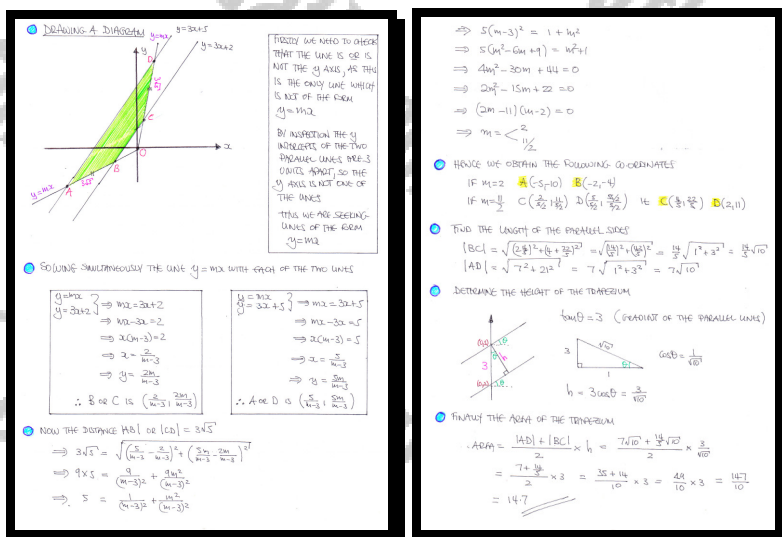 DRAWING A DIAGRAM
y=mx
y=3x+5
y=3x+2
y
D
3√5
C
x
O
B
3√5
A
y=mx
FIRSTLY WE NEED TO CHECK
THAT THE LINE IS OR IS
NOT THE y AXIS, AS THIS
IS THE ONLY LINE WHICH
IS NOT OF THE FORM
y=mx
BY INSPECTION THE y
INTERCEPTS OF THE TWO
PARALLEL LINES ARE 3
UNITS APART, SO THE
y AXIS IS NOT ONE OF
THE LINES
THUS WE ARE SEEKING
LINES OF THE FORM
y=mx
SOLVING SIMULTANEOUSLY THE LINE y=mx WITH EACH OF THE TWO LINES
y=mx
y=3x+2 } ⇒ mx=3x+2
⇒ mx-3x=2
⇒ x(m-3)=2
⇒ x = 2/(m-3)
⇒ y = 2m/(m-3)
∴ B OR C IS (2/(m-3), 2m/(m-3))
y=mx
y=3x+5 } ⇒ mx=3x+5
⇒ mx-3x=5
⇒ x(m-3)=5
⇒ x = 5/(m-3)
⇒ y = 5m/(m-3)
∴ A OR D IS (5/(m-3), 5m/(m-3))
NOW THE DISTANCE |AB| OR |CD| = 3√5
⇒ 3√5 = √((5/(m-3) - 2/(m-3))² + (5m/(m-3) - 2m/(m-3))²)
⇒ 9×5 = 9/(m-3)² + 9m²/(m-3)²
⇒ 5 = 1/(m-3)² + m²/(m-3)²
⇒ 5(m-3)² = 1+m²
⇒ 5(m²-6m+9) = m²+1
⇒ 4m²-30m+44=0
⇒ 2m²-15m+22=0
⇒ (2m-11)(m-2)=0
⇒ m = < 2
11/2
HENCE WE OBTAIN THE FOLLOWING CO-ORDINATES
IF m=2 A(-5,-10) B(-2,-4)
IF m=11/2 C(2/(5/2), 11/(5/2)) D(5/(5/2), (55/2)/(5/2)) IE C(4/5, 22/5) D(2,11)
FIND THE LENGTH OF THE PARALLEL SIDES
|BC| = √((2+4/5)²+(4+22/5)²) = √((14/5)²+(42/5)²) = 14/5 √(1²+3²) = 14/5 √10
|AD| = √(7²+21²) = 7√(1²+3²) = 7√10
DETERMINE THE HEIGHT OF THE TRAPEZIUM
tanθ=3 (GRADIENT OF THE PARALLEL LINES)
θ
3
h
θ
√10
3
θ
1
cosθ = 1/√10
h = 3cosθ = 3/√10
FINALLY THE AREA OF THE TRAPEZIUM
AREA = (|AD|+|BC|)/2 × h = (7√10 + 14/5 √10)/2 × 3/√10
= (7+14/5)/2 × 3 = (35+14)/10 × 3 = 49/10 × 3 = 147/10
= 14.7